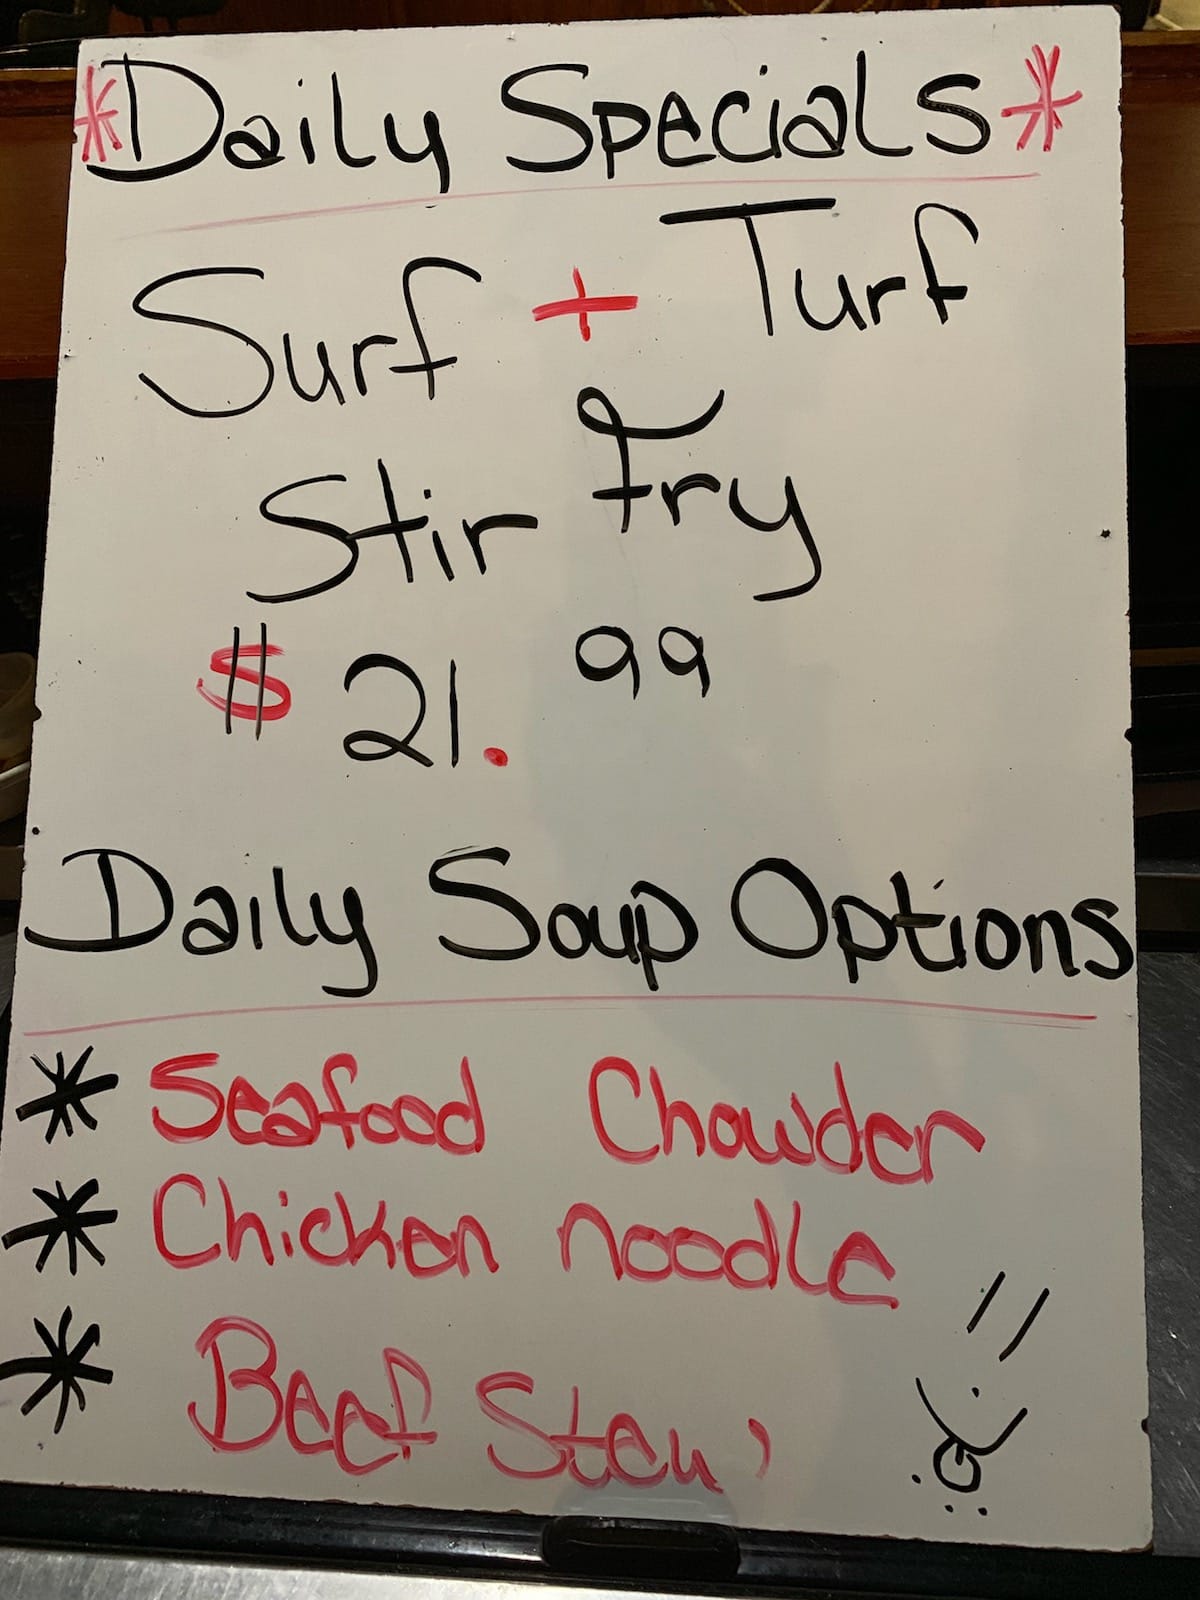 *Daily Specials*
Surf + Turf
Stir Fry
$21.99
Daily Soup Options
* Seafood Chowder
* Chicken noodle
* Beef Stew